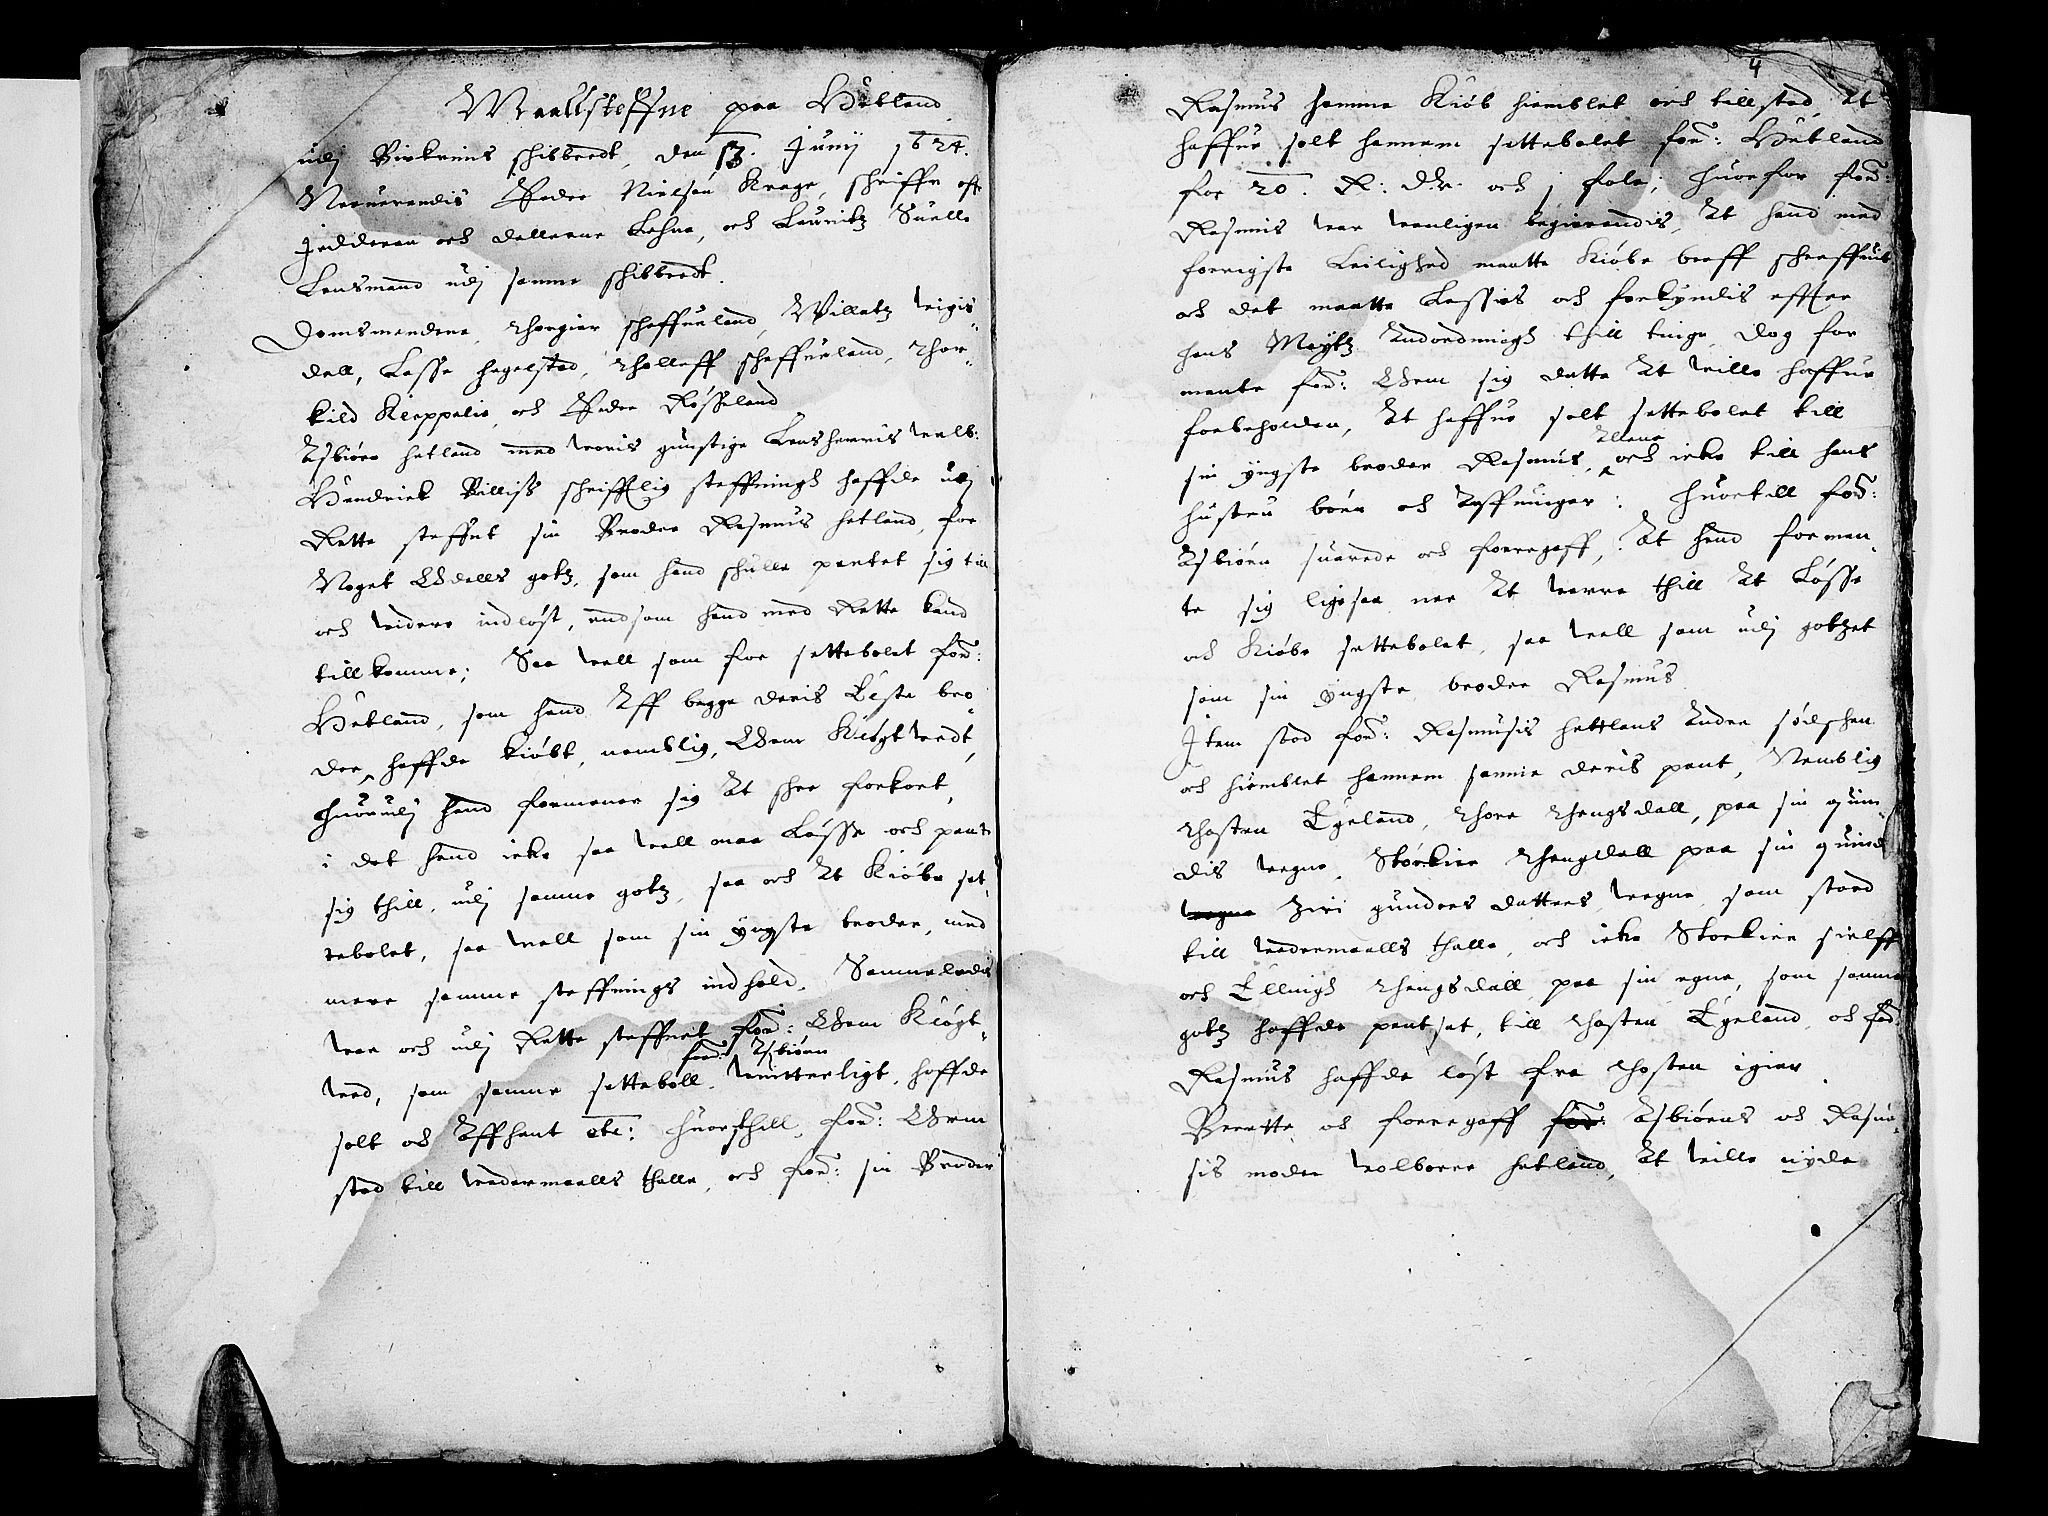 Waallsteffne paa Hetland
udj Birkrims schibbredt, den 13. Junij 1624.
Neruerendis Peder Nielsen Krage, schriffr offr
Jedderen och dallerne Lehne, och Lauritz Suelle
Lensmand udj samme schibbredt.
Domsmendene, Thorgier scheffueland, Willatz Veigis-
dall, Lasse hegelstad, Tholleff scheffueland, Thor-
kild Kleppelie, och Peder Røsseland
Asbiørn hetland med voris gunstige Lensherris velb:
Hendrick Billiss schrifftlig steffningh haffde udj
Rette steffnt sin Broder Rasmus hetland, for
Noget Odells gotz, som hand schulle pantet sig till
och videre indløst, end som hand med Rette kand
tillkomme; Saa vell som for settebolet ford:
Hetland, som hand Aff begge deris Eeste bro-
der, haffde kiøbt, nemblig, Orm Kiøgtvedt,
huorudj hand formener sig At schee forkort,
i det hand icke saa vell maa Løsse och pante
sig thill, udj samme gotz, saa och At Kiøbe set-
tebolet, saa vell som sin yngste broder, med
mere samme steffnings indhold. Sammeledis
var och udj Rette steffnet ford: Orm Kiøgt-
ved, som samme settebøll, ford: Asbiørn uvitterligt, haffde
solt och Affhent etc: huorthill, ford: Orm
stod till vedermaalls thalle, och ford: sin Broder
4
Rasmus samme Kiøb hiemblet och tillstod, At
haffue solt hannem settebolet ford: Hetland
for 20. R: dlr. och j fole; huorfor ford:
Rasmus var venligen begierendis, At hand med
forrigste Leilighed maatte Kiøbe breff schreffuit
och det maatte Lessis och forkyndis effter
hans Maytz Andordningh thill tinge, dog for
mente ford: Orm sig dette At ville haffue
forbeholden, At haffue solt settebolet till
sin yngste broder Rasmus, Allene och icke till hans
hustru børn och Arffuinger: huortill ford:
Asbiørn suarede och foregaff, At hand formen-
te sig ligesaa nær At verre thill At Løsse
och Kiøbe settebolet, saa vell som udj gotzet
som sin yngste broder Rasmus
Item stod ford: Rasmusis hettlans Andre sødschen
och hiemblet hannem samme deris pant, Nemblig
Thosten Egeland, Thore Thengsdall, paa sin quin-
dis vegne, Storkier Thengsdall paa sin quind
vegne Ziri gunders datters vegne, som stoed
till vedermaalls thalle, och icke Storkier sielff
och Ellingh Thengsdall paa sin egne, som samme
gotz haffde pantset, till Thosten Egeland, och ford
Rasmus haffde løst fra Thosten igien.
Berette och foregaff ford: Asbiørns och Rasmu-
sis moder volborre hetland, At ville nyde